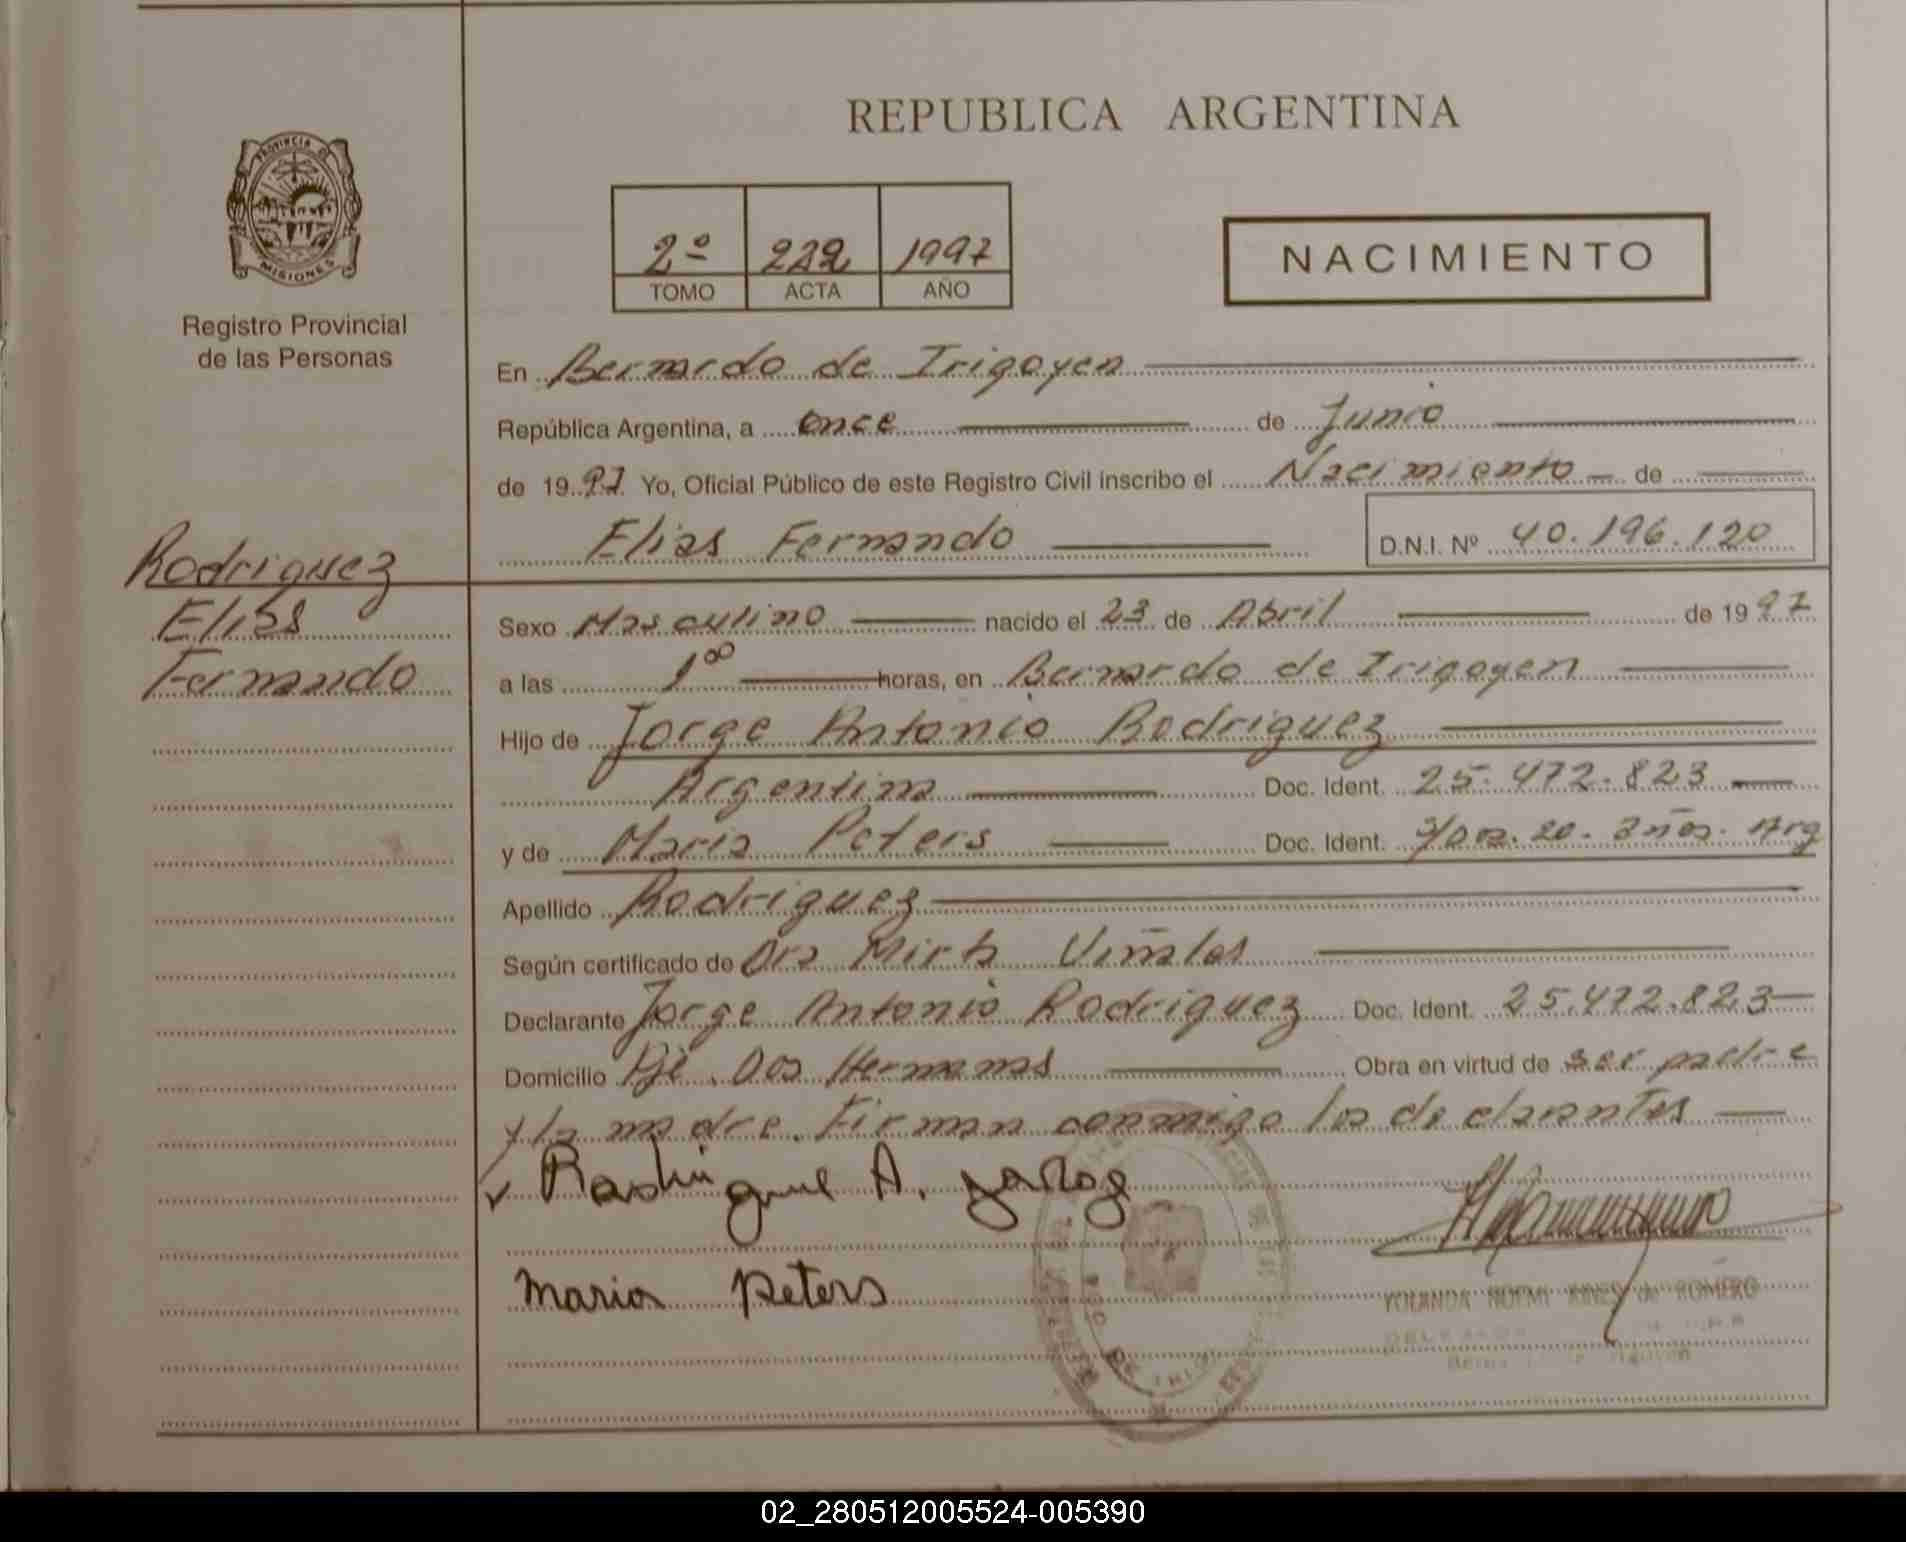 REPUBLICA ARGENTINA
PROVINCIA DE
MISIONES
Registro Provincial
de las Personas
2º 222 1997
TOMO ACTA AÑO
NACIMIENTO
En Bernardo de Irigoyen
República Argentina, a once de Junio
de 1997 Yo, Oficial Público de este Registro Civil inscribo el Nacimiento de
Elias Fernando D.N.I. Nº 40.196.120
Rodriguez
Elias
Fernando
Sexo Masculino nacido el 23 de Abril de 1997
a las 1⁰⁰ horas, en Bernardo de Irigoyen
Hijo de Jorge Antonio Rodriguez
Argentina Doc. Ident. 25.472.823
y de Maria Peters Doc. Ident. 20. años. Arg
Apellido Rodriguez
Según certificado de Dra Mirta Viñales
Declarante Jorge Antonio Rodriguez Doc. Ident. 25.472.823
Domicilio Pje. Dos Hermanas Obra en virtud de ser padre
y la madre. Firman conmigo los declarantes
A.
Maria Peters
YOLANDA NOEMI de ROMERO
02_280512005524-005390